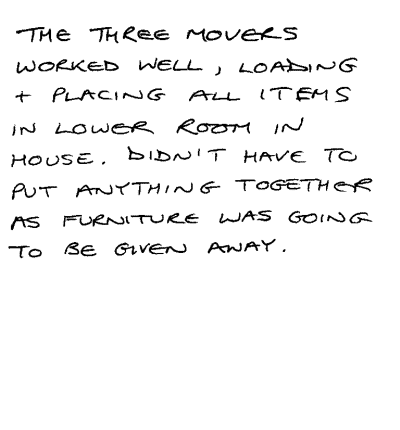 THE THREE MOVERS
WORKED WELL, LOADING
+ PLACING ALL ITEMS
IN LOWER ROOM IN
HOUSE. DIDN'T HAVE TO
PUT ANYTHING TOGETHER
AS FURNITURE WAS GOING
TO BE GIVEN AWAY.